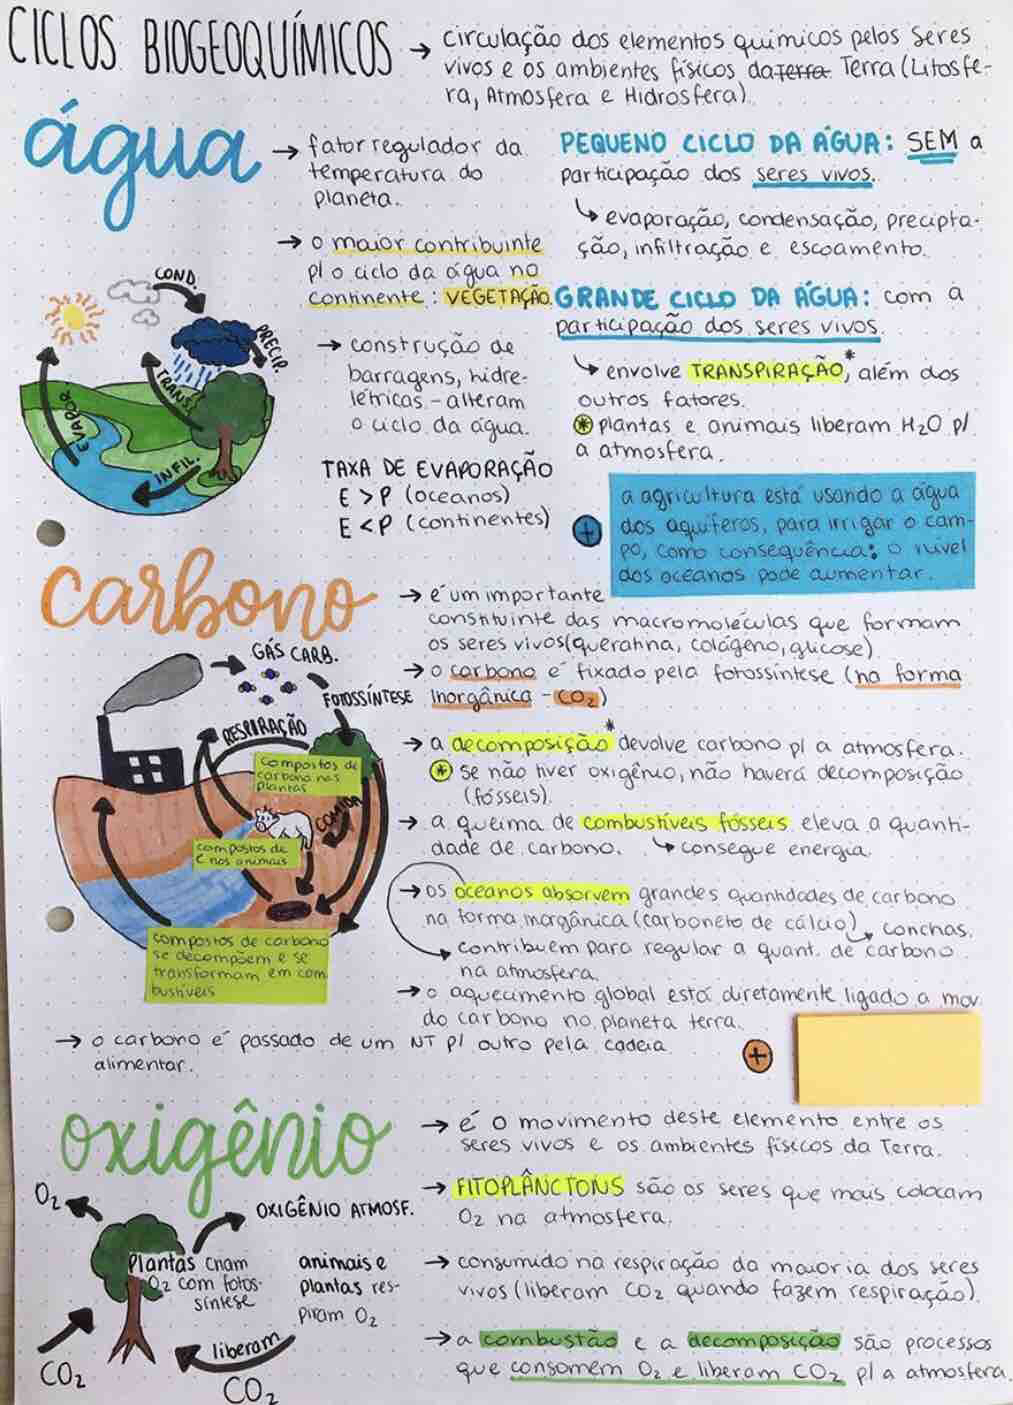 CICLOS BIOGEOQUÍMICOS → circulação dos elementos químicos pelos seres
vivos e os ambientes físicos da Terra Terra (Litosfe-
ra, Atmosfera e Hidrosfera).
água
→ fator regulador da
temperatura do
planeta.
→ o maior contribuinte
p/ o ciclo da água no
continente: VEGETAÇÃO.
→ construção de
barragens, hidre-
létricas - alteram
o ciclo da água.
TAXA DE EVAPORAÇÃO
E > P (oceanos)
E < P (continentes)
PEQUENO CICLO DA ÁGUA: SEM a
participação dos seres vivos.
↳ evaporação, condensação, precipta-
ção, infiltração e escoamento.
GRANDE CICLO DA ÁGUA: com a
participação dos seres vivos.
↳ envolve TRANSPIRAÇÃO*, além dos
outros fatores.
* plantas e animais liberam H₂O p/
a atmosfera.
+
a agricultura está usando a água
dos aquíferos, para irrigar o cam-
po, como consequência: o nível
dos oceanos pode aumentar.
COND.
PRECIP.
TRANS.
EVAPOR.
INFIL.
carbono
→ é um importante
constituinte das macromoléculas que formam
os seres vivos (queratina, colágeno, glicose)
→ o carbono é fixado pela fotossíntese (na forma
Inorgânica - CO₂)
→ a decomposição* devolve carbono p/ a atmosfera.
* se não tiver oxigênio, não haverá decomposição
(fósseis).
→ a queima de combustíveis fósseis eleva a quanti-
dade de carbono. ↳ consegue energia.
→ os oceanos absorvem grandes quantidades de carbono
na forma inorgânica (carboneto de cálcio) ↳ conchas.
contribuem para regular a quant. de carbono
na atmosfera.
→ o aquecimento global está diretamente ligado a mov.
do carbono no planeta terra.
GÁS CARB.
FOTOSSÍNTESE
RESPIRAÇÃO
compostos de
carbono nas
plantas
COMIDA
compostos de
C nos animais
compostos de carbono
se decompõem e se
transformam em com
bustíveis
→ o carbono é passado de um NT p/ outro pela cadeia
alimentar.
+
oxigênio
→ é o movimento deste elemento entre os
seres vivos e os ambientes físicos da Terra.
→ FITOPLÂNCTONS são os seres que mais colocam
O₂ na atmosfera.
→ consumido na respiração da maioria dos seres
vivos (liberam CO₂ quando fazem respiração).
→ a combustão e a decomposição são processos
que consomem O₂ e liberam CO₂ p/ a atmosfera.
O₂
OXIGÊNIO ATMOSF.
Plantas criam
O₂ com fotos-
síntese
animais e
plantas res-
piram O₂
liberam
CO₂
CO₂